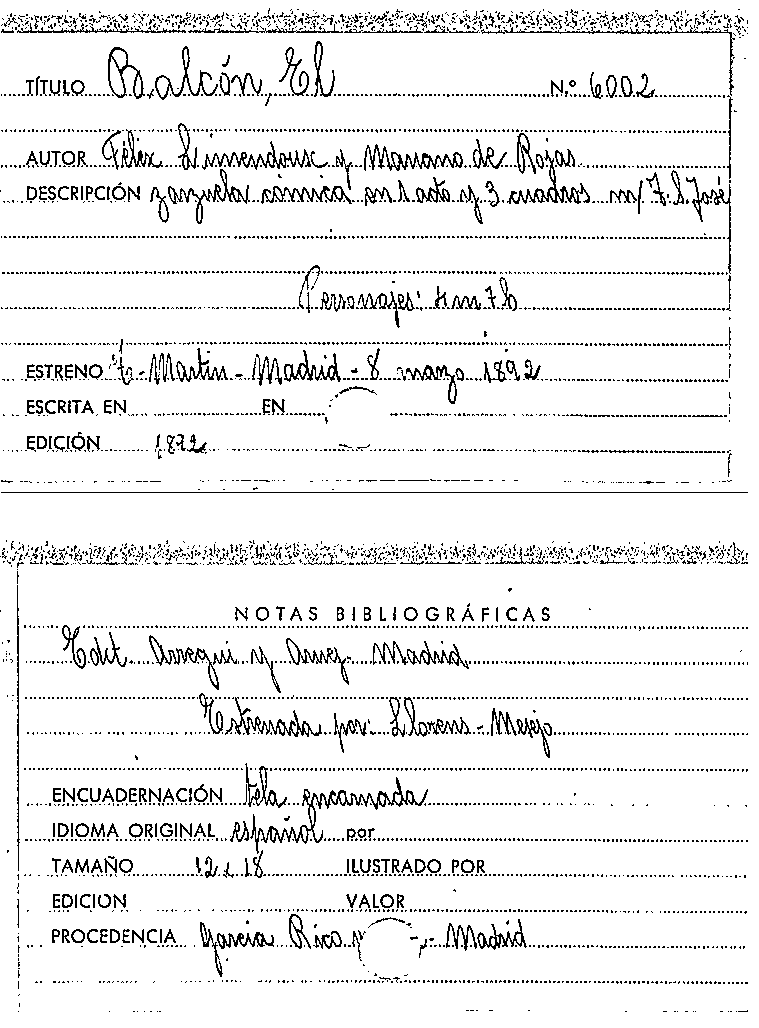 TÍTULO Balcón, El N.º 6002
AUTOR Félix Limendoux y Mariano de Rojas
DESCRIPCIÓN zarzuela cómica en 1 acto y 3 cuadros m/ F. S. José
Personajes: 4 m 7 h
ESTRENO T- Martín - Madrid - 8 marzo 1892
ESCRITA EN EN
EDICIÓN 1892
NOTAS BIBLIOGRÁFICAS
Edit. Arregui y Aruej - Madrid
Estrenada por: Llorens - Mesejo
ENCUADERNACIÓN tela encarnada
IDIOMA ORIGINAL español por
TAMAÑO 12 x 18 ILUSTRADO POR
EDICION VALOR
PROCEDENCIA García Rico y - Madrid